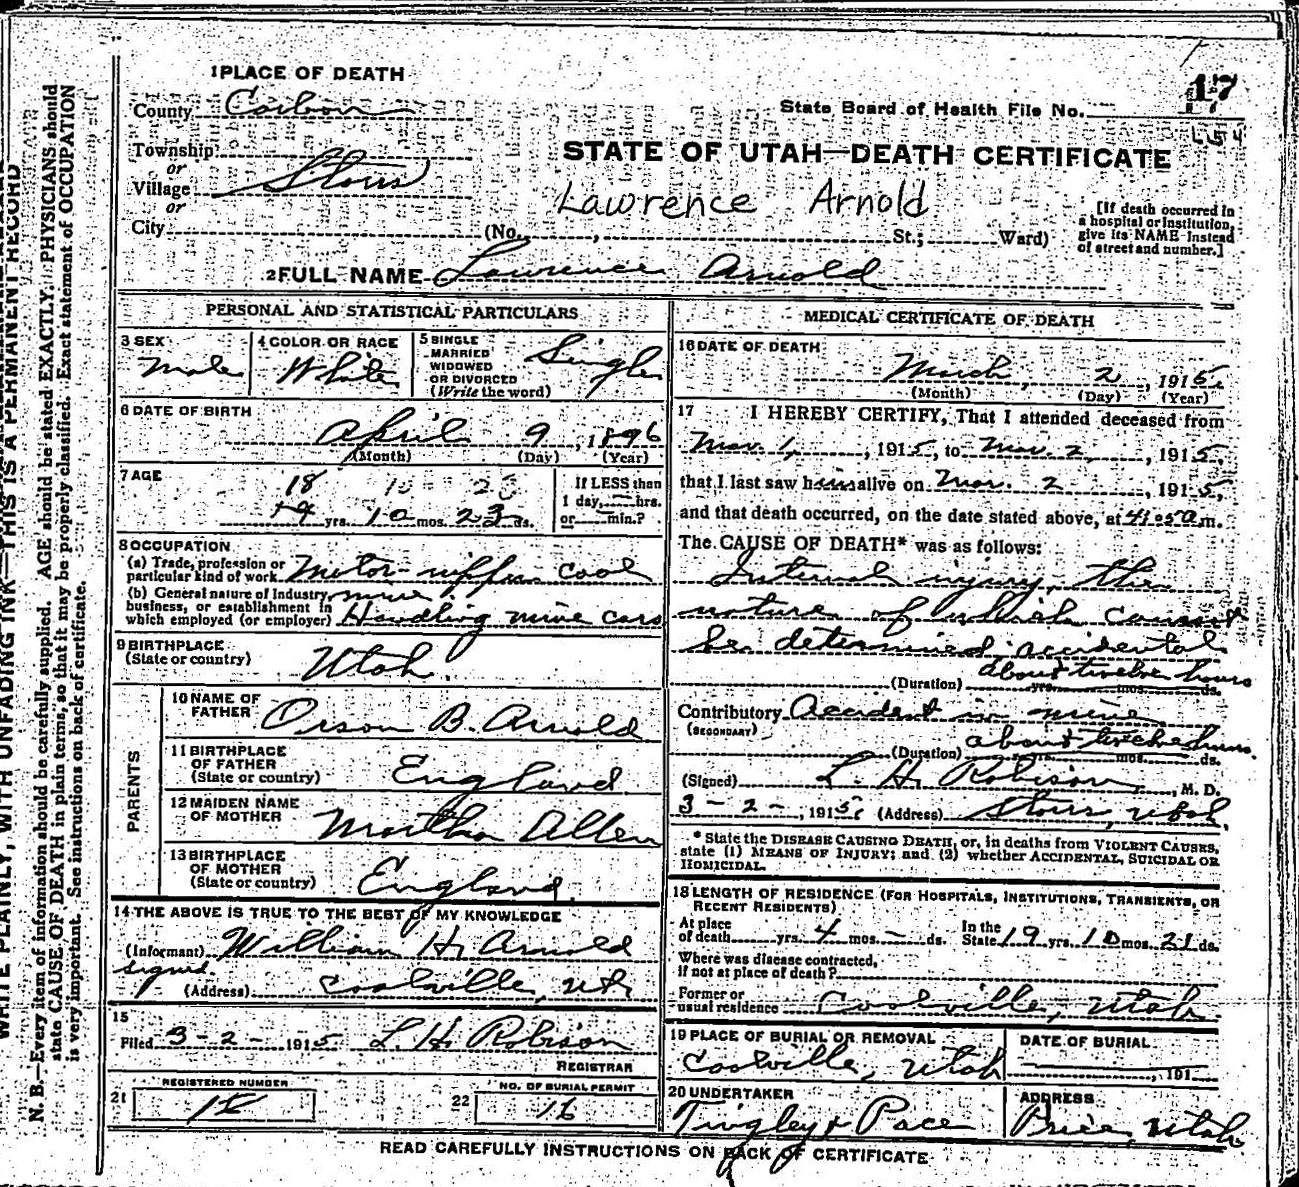 1 PLACE OF DEATH
County Carbon
State Board of Health File No. 17
Township
or
Village Storrs
or
City
STATE OF UTAH—DEATH CERTIFICATE
Lawrence Arnold
(No. , St.; Ward)
[If death occurred in
a hospital or institution,
give its NAME instead
of street and number.]
2 FULL NAME Lawrence Arnold
PERSONAL AND STATISTICAL PARTICULARS
3 SEX
Male
4 COLOR OR RACE
White
5 SINGLE
MARRIED
WIDOWED
OR DIVORCED
(Write the word)
Single
6 DATE OF BIRTH
April 9, 1896
(Month) (Day) (Year)
7 AGE
18 10 23
19 yrs. 10 mos. 23 ds.
If LESS than
1 day, hrs.
or min.?
8 OCCUPATION
(a) Trade, profession or
particular kind of work Motor nipper coal
(b) General nature of Industry, mine.
business, or establishment in
which employed (or employer) Handling mine cars
9 BIRTHPLACE
(State or country) Utah.
PARENTS
10 NAME OF
FATHER Orson B. Arnold
11 BIRTHPLACE
OF FATHER
(State or country) England
12 MAIDEN NAME
OF MOTHER Martha Allen
13 BIRTHPLACE
OF MOTHER
(State or country) England.
14 THE ABOVE IS TRUE TO THE BEST OF MY KNOWLEDGE
(Informant) William H. Arnold
signed.
(Address) Coalville, Utr
15
Filed 3-2-, 1915 L. H. Robison
REGISTRAR
REGISTERED NUMBER
21
NO. OF BURIAL PERMIT
22 16
MEDICAL CERTIFICATE OF DEATH
16 DATE OF DEATH
March, 2, 1915.
(Month) (Day) (Year)
17 I HEREBY CERTIFY, That I attended deceased from
Mar. 1, 1915, to Mar. 2, 1915,
that I last saw him alive on Mar. 2, 1915,
and that death occurred, on the date stated above, at 4:05 a.m.
The CAUSE OF DEATH* was as follows:
Internal injury, the
nature of which cannot
be determined accidental
(Duration) about twelve hours
yrs. mos. ds.
Contributory Accident in mine
(SECONDARY)
(Duration) about twelve hours.
yrs. mos. ds.
(Signed) L. H. Robison, M. D.
3-2-, 1915. (Address) Storrs, Utah.
* State the DISEASE CAUSING DEATH, or, in deaths from VIOLENT CAUSES,
state (1) MEANS OF INJURY; and (2) whether ACCIDENTAL, SUICIDAL OR
HOMICIDAL.
18 LENGTH OF RESIDENCE (FOR HOSPITALS, INSTITUTIONS, TRANSIENTS, OR
RECENT RESIDENTS)
At place
of death yrs. 4 mos. - ds.
In the
State 19 yrs. 10 mos. 21 ds.
Where was disease contracted,
if not at place of death?
Former or
usual residence Coalville, Utah
19 PLACE OF BURIAL OR REMOVAL
Coalville, Utah
DATE OF BURIAL
, 191
20 UNDERTAKER
Tingley & Pace
ADDRESS
Price, Utah
READ CAREFULLY INSTRUCTIONS ON BACK OF CERTIFICATE
WRITE PLAINLY, WITH UNFADING INK—THIS IS A PERMANENT RECORD
N. B.—Every item of information should be carefully supplied. AGE should be stated EXACTLY. PHYSICIANS should
state CAUSE OF DEATH in plain terms, so that it may be properly classified. Exact statement of OCCUPATION
is very important. See instructions on back of certificate.